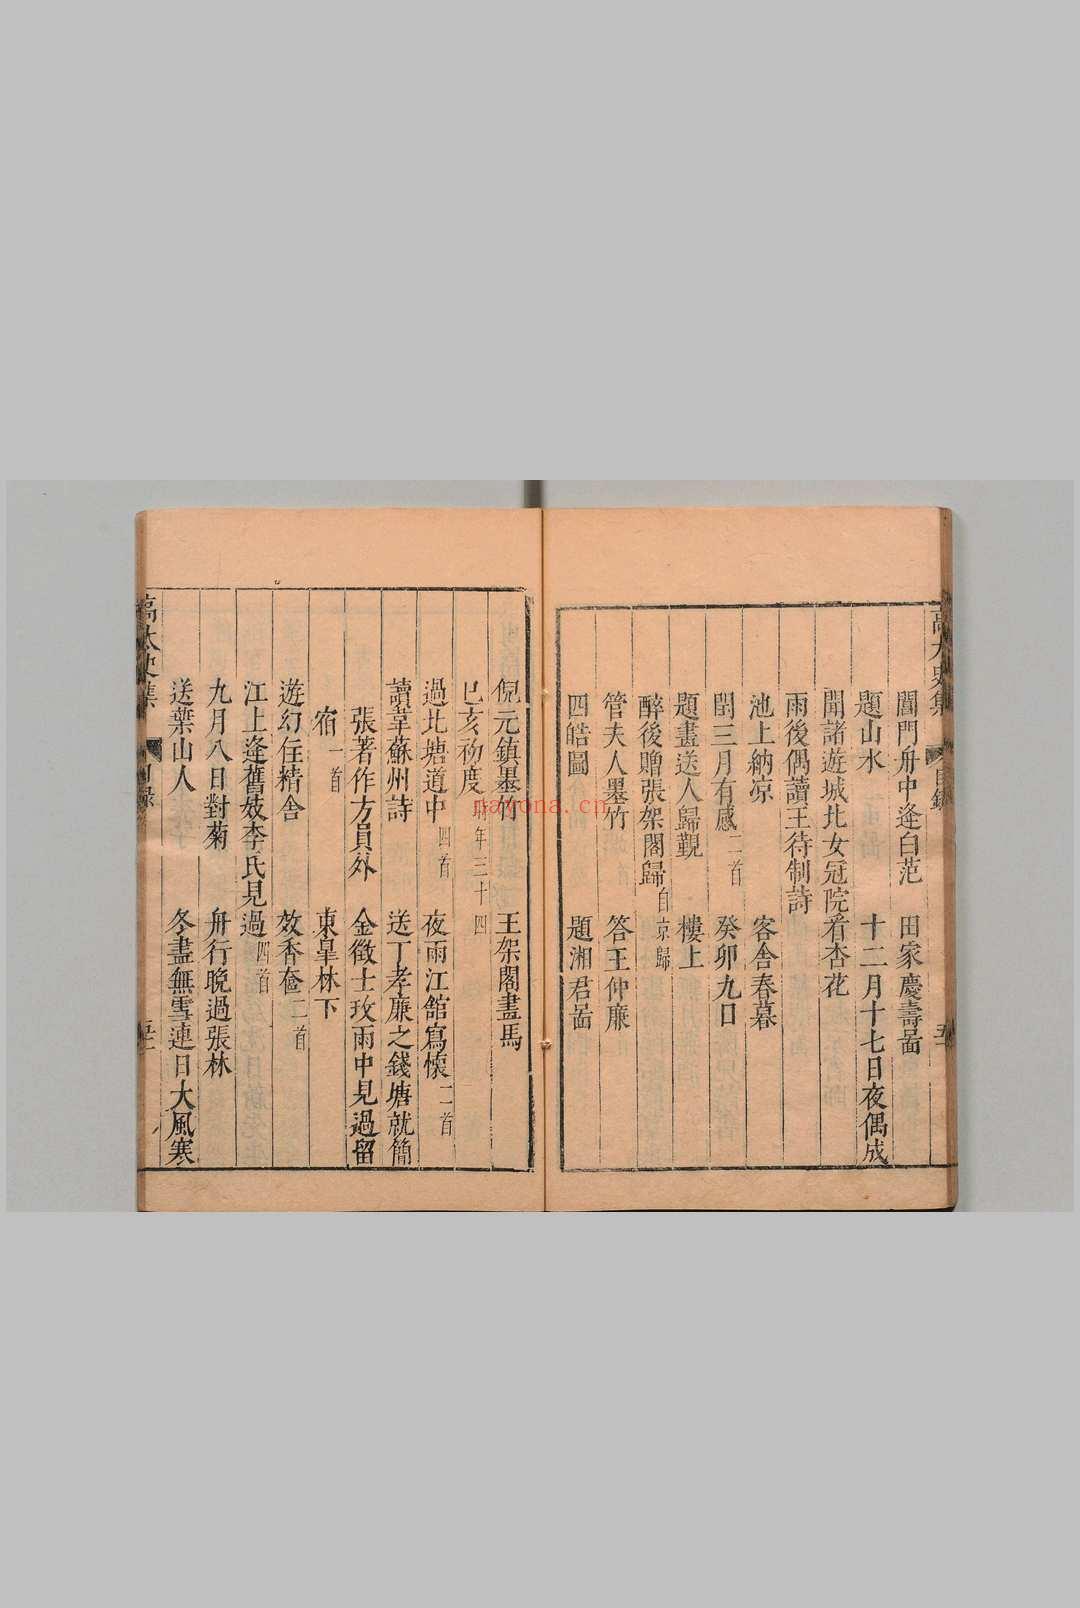 閶門舟中逢白范　田家慶壽啚
題山水　十二月十七日夜偶成
聞諸遊城北女冠院看杏花
雨後偶讀王待制詩
池上納凉　客舍春暮
閏三月有感二首　癸卯九日
題畫送人歸覲　樓上
醉後贈張架閣歸自京歸
管夫人墨竹　答王仲廉
四皓圖　題湘君啚
倪元鎮墨竹　王架閣畫馬
己亥初度時年三十四
過北塘道中四首　夜雨江館寫懷二首
讀韋蘇州詩　送丁孝廉之錢塘就簡
張著作方員外　金徵士玫雨中見過留
宿一首　東皐林下
遊幻住精舍　效香奩二首
江上逢舊妓李氏見過四首
九月八日對菊　舟行晚過張林
送葉山人　冬盡無雪連日大風寒
高太史集　目錄
nayona.cn